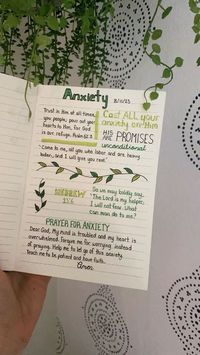 Anxiety
Trust in Him at all times,
you people; pour out your
hearts to Him, for God
is our refuge. Psalm 62:8
Cast ALL your
anxiety on Him
HIS PROMISES
ARE unconditional
"Come to me, all you who labor and are heavy
laden, and I will give you rest."
HEBREW
13:6
So we may boldly say,
"The Lord is my helper,
I will not fear. What
can man do to me?
PRAYER FOR ANXIETY
Dear God, My mind is troubled and my heart is
overwhelmed. Forgive me for worrying instead
of praying. Help me to let go of this anxiety.
Teach me to be patient and have faith.
Amen